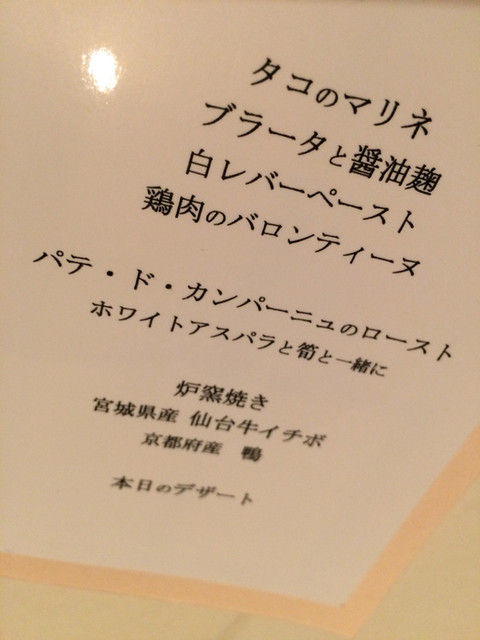 タコのマリネ
ブラータと醤油麹
白レバーペースト
鶏肉のバロンティーヌ
パテ・ド・カンパーニュのロースト
ホワイトアスパラと筍と一緒に
炉窯焼き
宮城県産 仙台牛イチボ
京都府産 鴨
本日のデザート